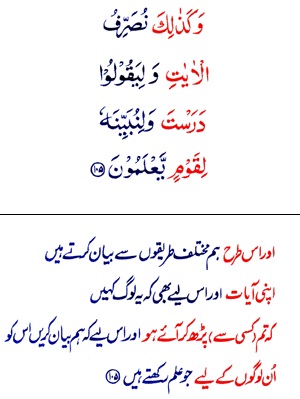 وَكَذٰلِكَ نُصَرِّفُ
الْاٰيٰتِ وَ لِيَقُوْلُوْا
دَرَسْتَ وَلِنُبَيِّنَهٗ
لِقَوْمٍ يَّعْلَمُوْنَ ۝۱۰۵
اور اس طرح ہم مختلف طریقوں سے بیان کرتے ہیں
اپنی آیات اور اس لیے بھی کہ یہ لوگ کہیں
کہ تم (کسی سے) پڑھ کر آئے ہو اور اس لیے کہ ہم بیان کریں اس کو
اُن لوگوں کے لیے جو علم رکھتے ہیں ۝۱۰۵